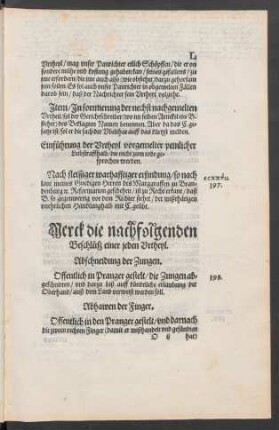 L
Vrtheyl / mag vnser Panrichter etlich Schöpffen / die er on
sonder mühe vnd kostung gehaben kan / seines gefallens / zu
jme erfordern die jme auch also / wie obsteht / darzu gehorsam
sein sollen. Es sol auch vnser Panrichter in obgemelten Fällen
darob sein / daß der Nachrichter sein Vrtheyl volziehe.
Item / In formierung der nechst nachgemelten
Vrtheyl / sol der Gerichtschreiber / wo im selben Artickel ein B.
stehet / des Beklagten Namen benennen. Aber da das H.
gesatzt ist / sol er die sach der Missethat auff das kürtzt melden.
Einführung der Vrtheyl vorgemelter peinlicher
Leibstraff halb / die nicht zum tode ge-
sprochen werden.
Nach fleissiger warhafftiger erfindung / so nach
laut meines Gnedigen Herrn des Marggraffen zu Bran-
denburg rc. Reformation geschehen / ist zu Recht erkant / daß
B. so gegenwertig vor dem Richter stehet / der mißthätigen
vnehrlichen Handlung halb mit H. geübt.
197.
Merck die nachfolgenden
Beschlüß einer jeden Vrtheyl.
Abschneidung der Zungen.
Offentlich in Pranger gestelt / die Zungen ab-
geschnitten / vnd darzu biß auff kündtliche erlaubung der
Oberhand / auß dem Land verweist werden soll.
198.
Abhawen der Finger.
Offentlich in den Pranger gestelt / vnd darnach
die zween rechten Finger (damit er mißhandelt vnd gesündiget
hat)